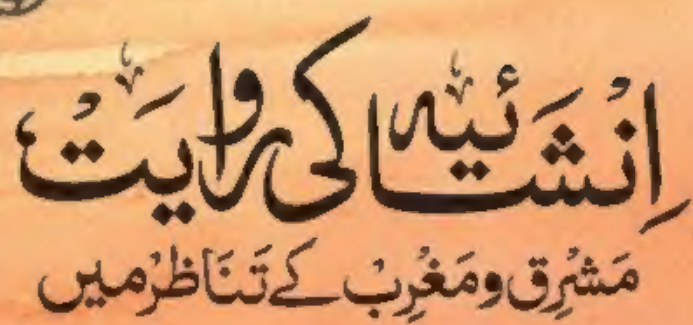 اِنْشَائیہ کی رِوَایَتْ
مَشْرِق و مَغْرِبْ کے تَنَاظُرْ میں